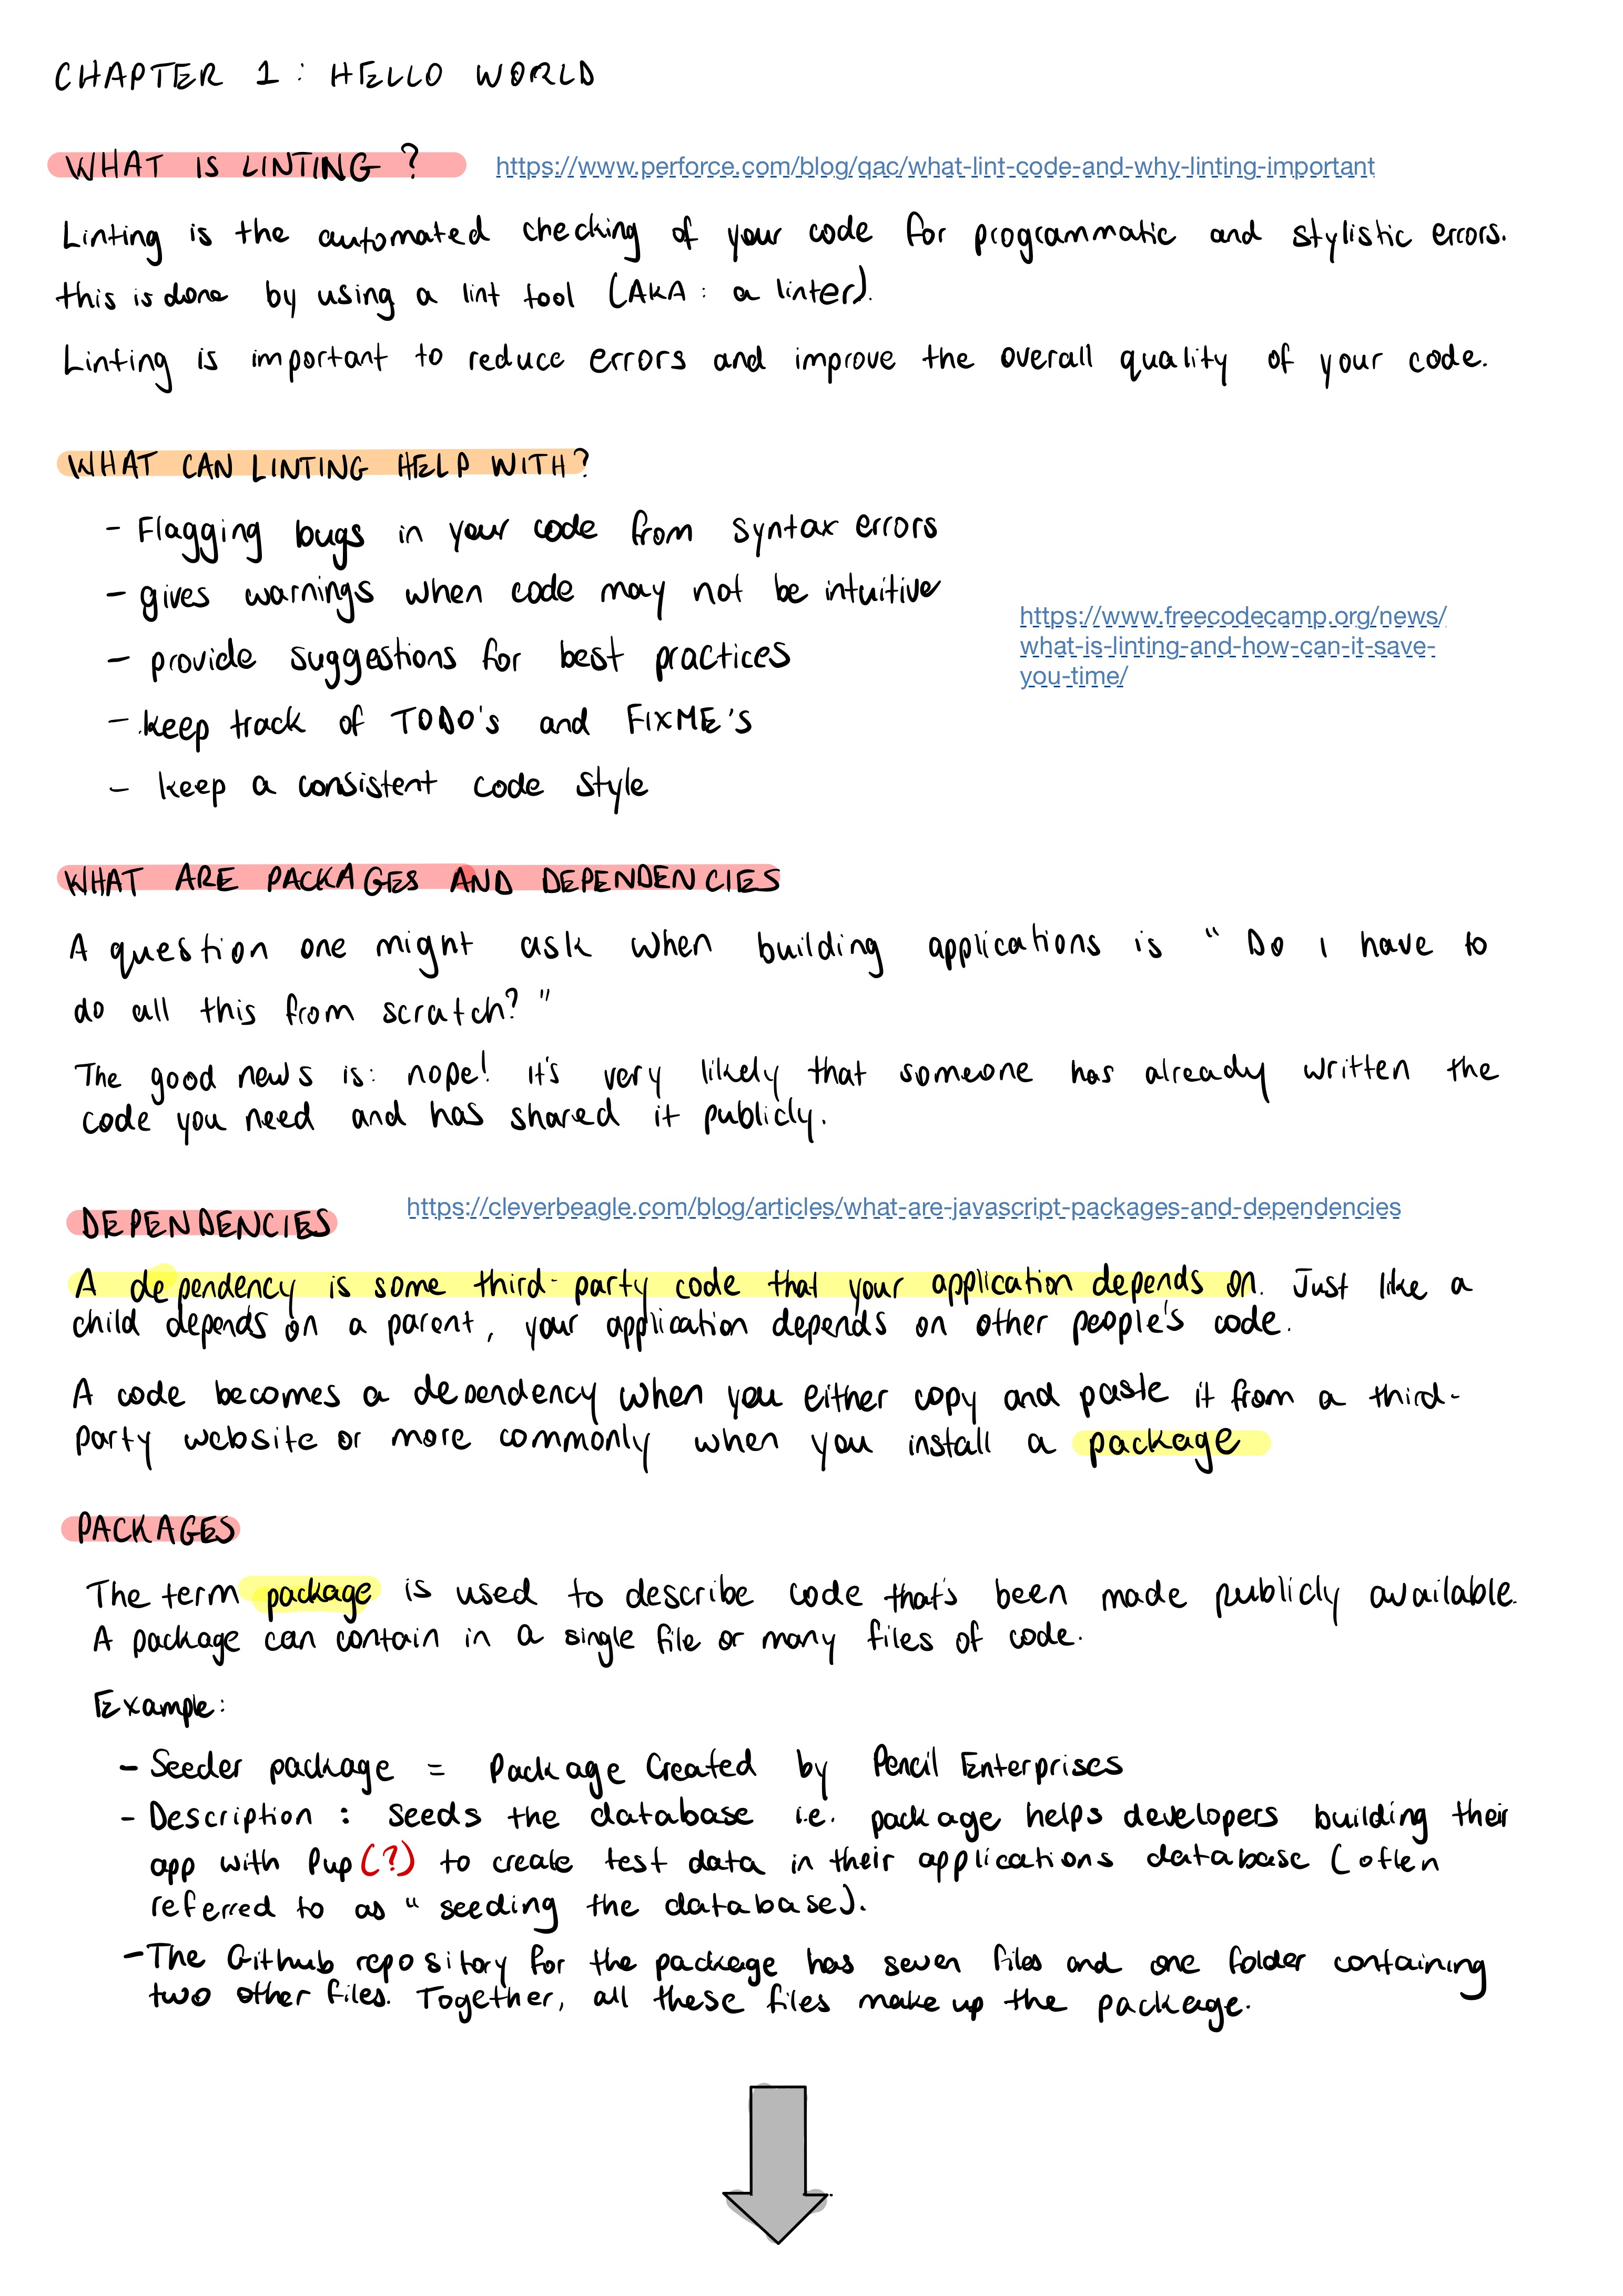 CHAPTER 1 : HELLO WORLD
WHAT IS LINTING ? https://www.perforce.com/blog/qac/what-lint-code-and-why-linting-important
Linting is the automated checking of your code for programmatic and stylistic errors.
this is done by using a lint tool (AKA : a linter).
Linting is important to reduce errors and improve the overall quality of your code.
WHAT CAN LINTING HELP WITH?
- Flagging bugs in your code from syntax errors
- gives warnings when code may not be intuitive
- provide suggestions for best practices
- keep track of TODO's and FIXME'S
- keep a consistent code style
https://www.freecodecamp.org/news/
what-is-linting-and-how-can-it-save-
you-time/
WHAT ARE PACKAGES AND DEPENDENCIES
A question one might ask when building applications is " Do I have to
do all this from scratch? "
The good news is: nope! it's very likely that someone has already written the
code you need and has shared it publicly.
DEPENDENCIES https://cleverbeagle.com/blog/articles/what-are-javascript-packages-and-dependencies
A dependency is some third-party code that your application depends on. Just like a
child depends on a parent, your application depends on other people's code.
A code becomes a dependency when you either copy and paste it from a third-
party website or more commonly when you install a package
PACKAGES
The term package is used to describe code that's been made publicly available.
A package can contain in a single file or many files of code.
Example:
- Seeder package = Package Created by Pencil Enterprises
- Description : Seeds the database i.e. package helps developers building their
app with Pup (?) to create test data in their applications database (often
referred to as " seeding the database).
- The Github repository for the package has seven files and one folder containing
two other files. Together, all these files make up the package.